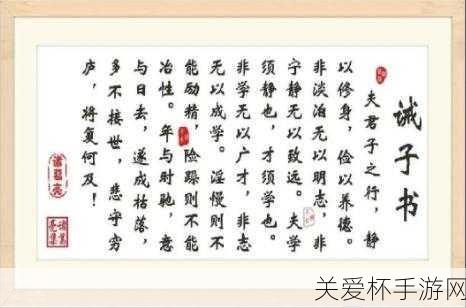 诫子书
夫君子之行，静
以修身，俭以养德。
非淡泊无以明志，非
宁静无以致远。夫学
须静也，才须学也。
非学无以广才，非志
无以成学。淫慢则不
能励精，险躁则不能
冶性。年与时驰，意
与日去，遂成枯落，
多不接世，悲守穷
庐，将复何及！
诸葛亮
关爱杯手游网